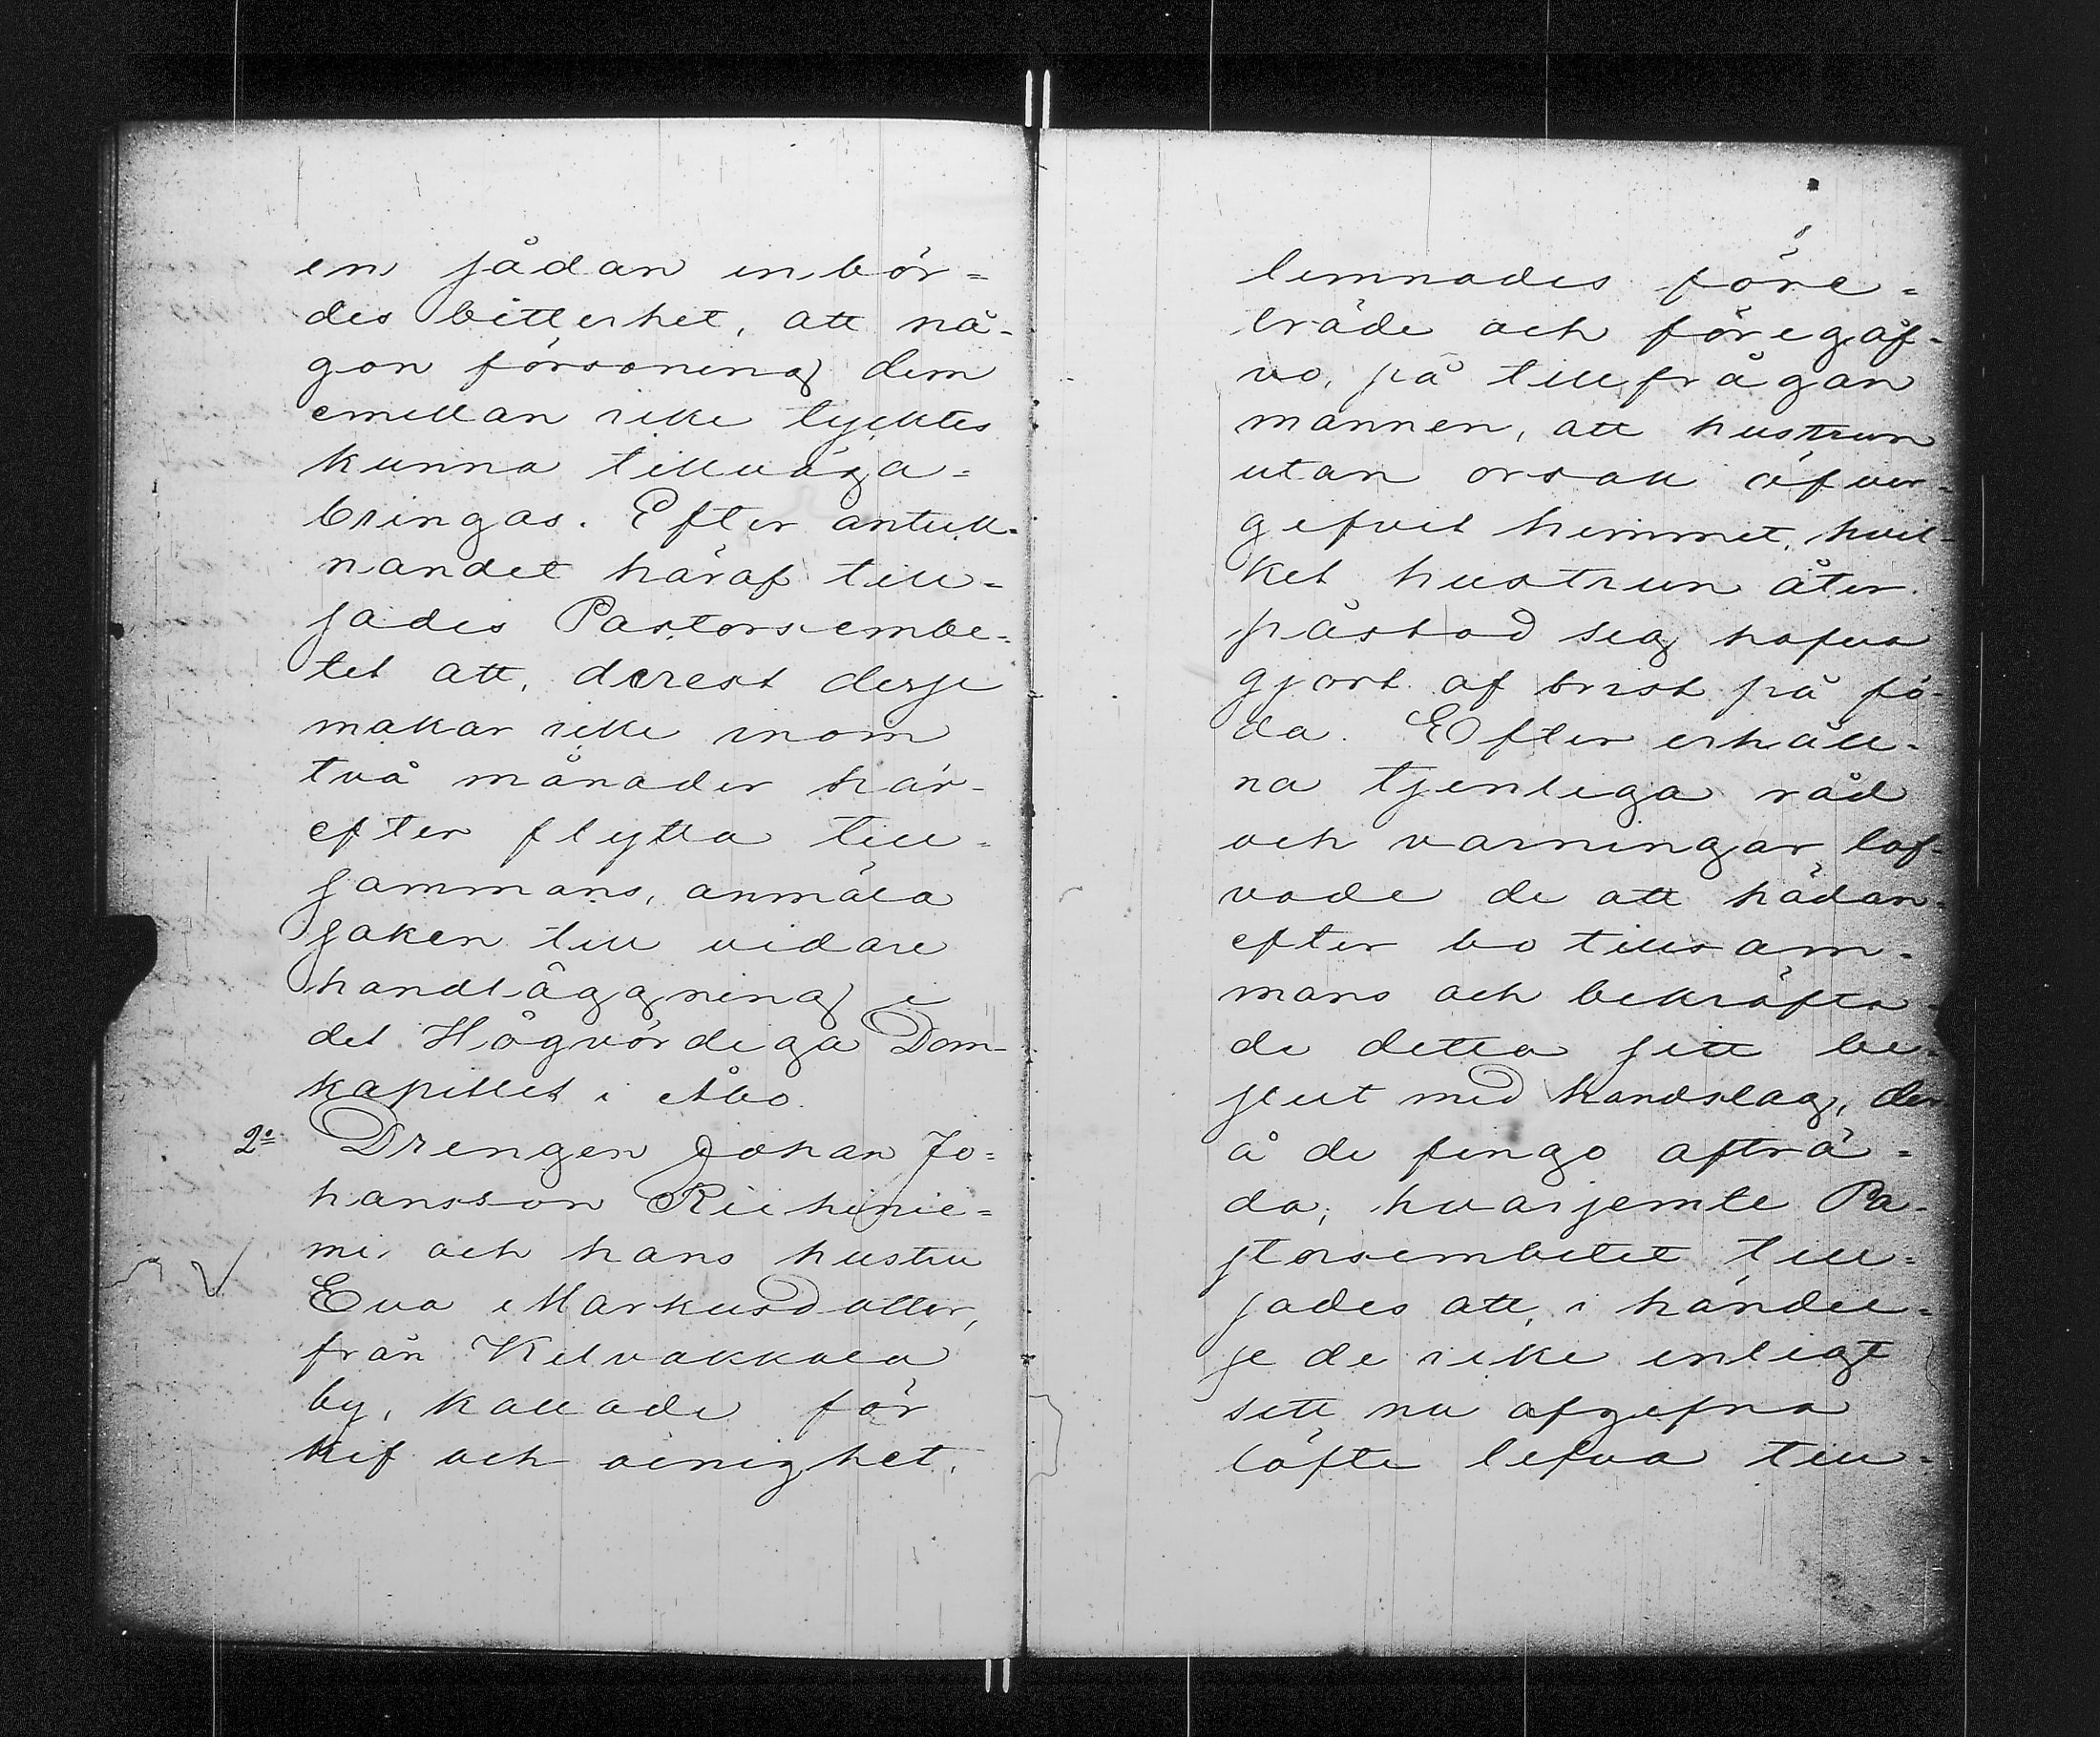 en sådan inbör=
des bitterhet, att nå-
gon försoning dem
emellan icke tycktes
kunna tillväga=
bringas. Efter anteck-
nandet häraf till=
sades Pastorsembe-
tet att, derest desse
makar icke inom
två månader här-
efter flytta till=
sammans, anmäla
saken till vidare
handläggning i
det Högvördiga Dom-
kapitlet i Åbo.
2o Drengen Johan Jo=
hansson Riihinie=
mi och hans hustru
Eva Markusdotter,
från Kilvakkala
by, kallade för
kif och oenighet,
lemnades före=
träde och föregåf-
vo, på tillfrågan
mannen, att hustrun
utan orsak öfver-
gifvit hemmet, hvil-
ket hustrun åter
påstod sig hafva
gjort af brist på fö-
da. Efter erhåll-
na tjenliga råd
och varningar lof-
vade de att hädan-
efter bo tillsam-
mans och bekräfta-
de detta sitt be-
slut med handslag, der-
å de fingo afträ-
da, hvarjemte Pa-
storsembetet till=
sades att, i händel=
se de icke enligt
sitt nu afgifna
löfte lefva till-